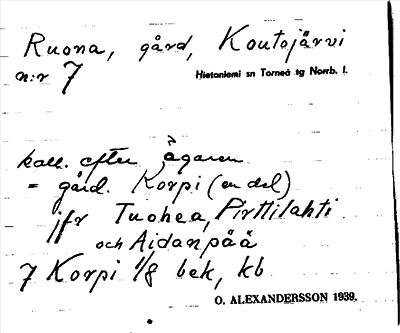 Ruona, gård, Koutojärvi
n:r 7
Hietaniemi sn Torneå tg Norrb. l.
kall. efter ägaren
= gård. Korpi (en del)
jfr Tuohea, Pirttilahti
och Aidanpää
7 Korpi 1/8 bek, kb
O. ALEXANDERSSON 1939.